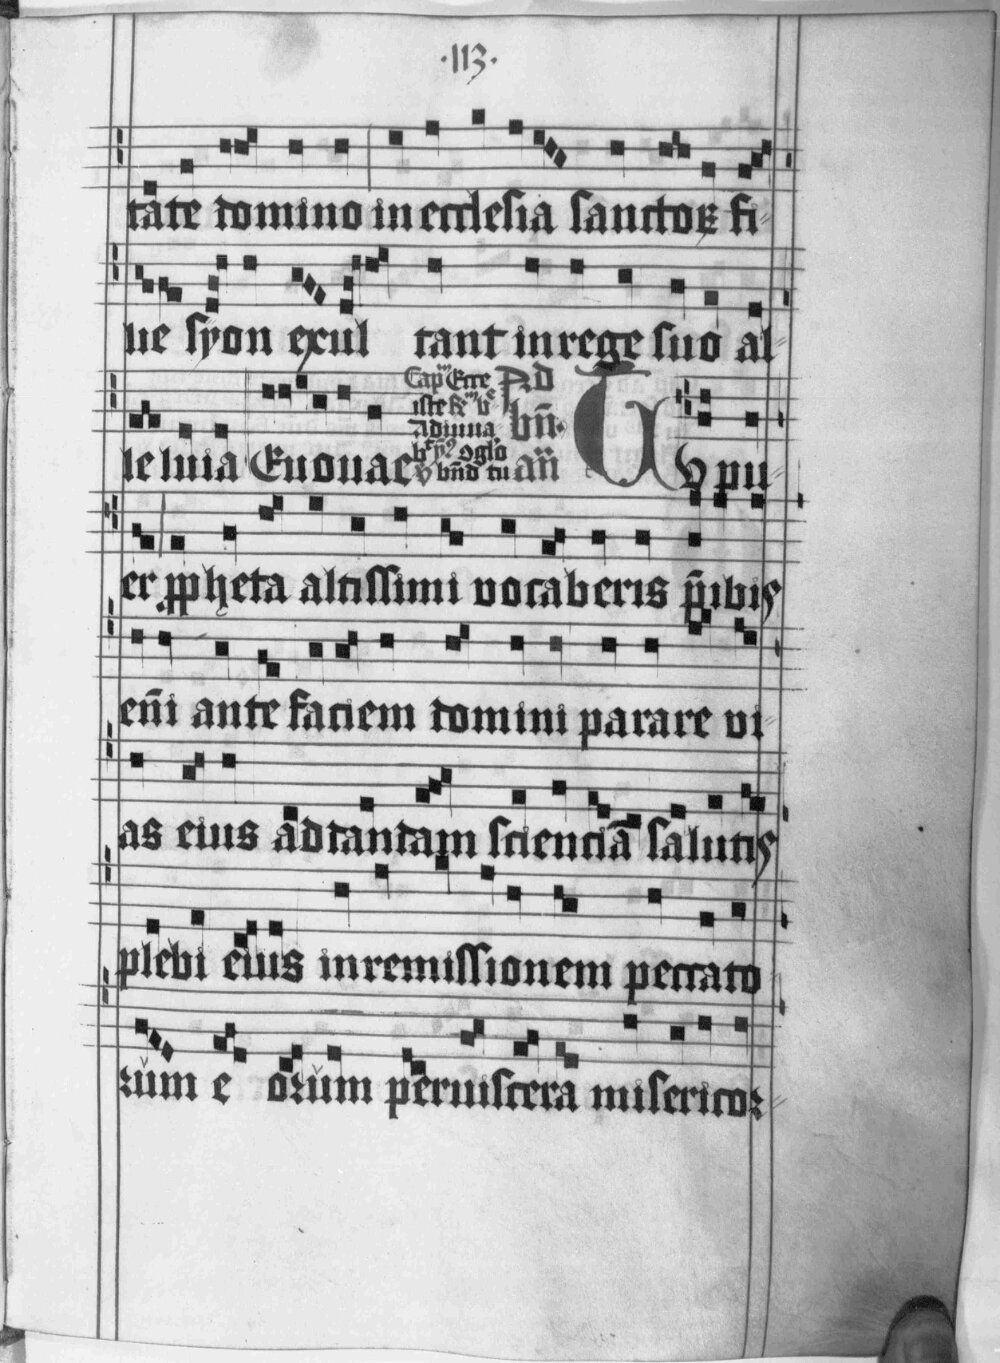 ·113·
tate domino in ecclesia sanctoꝝ fi-
lie syon exul tant in rege suo al
le luia Euouae Capᵐ Ecce iste Adiuua ad bn̄. v̄ bn̄d tu an̄ Tv pu-
er ꝓpheta altissimi vocaberis p̄ibis
eni̅ ante faciem domini parare vi-
as eius ad tandam sciencia̅ salutis
plebi eius in remissionem peccato
rum e orum per viscera misericor-